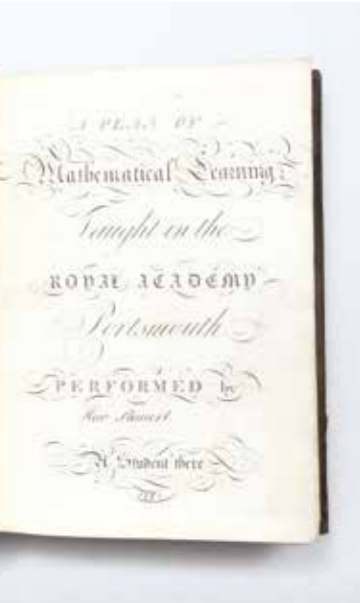 A PLAN OF
Mathematical Learning
Taught in the
ROYAL ACADEMY
Portsmouth
PERFORMED by
A Student there